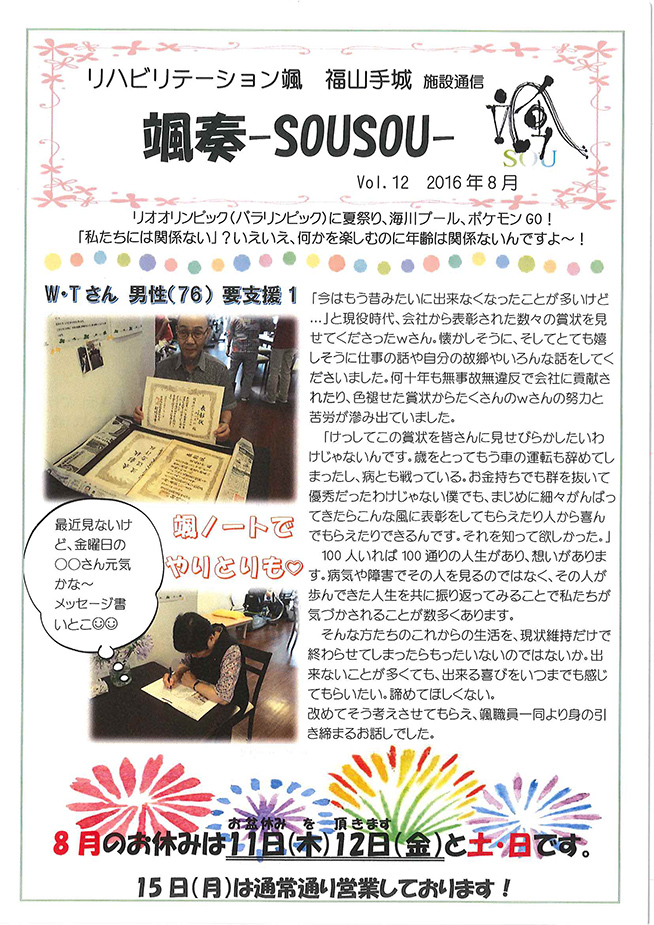 リハビリテーション颯　福山手城 施設通信
颯奏-SOUSOU-
颯
SOU
Vol.12　2016年8月
リオオリンピック(パラリンピック)に夏祭り、海川プール、ポケモンGO！
「私たちには関係ない」？いえいえ、何かを楽しむのに年齢は関係ないんですよ～！
W・Tさん 男性(76) 要支援1
「今はもう昔みたいに出来なくなったことが多いけど
…」と現役時代、会社から表彰された数々の賞状を見
せてくださったwさん。懐かしそうに、そしてとても嬉
しそうに仕事の話や自分の故郷やいろんな話をしてく
ださいました。何十年も無事故無違反で会社に貢献さ
れたり、色褪せた賞状からたくさんのwさんの努力と
苦労が滲み出ていました。
「けっしてこの賞状を皆さんに見せびらかしたいわ
けじゃないんです。歳をとってもう車の運転も辞めてし
まったし、病とも戦っている。お金持ちでも群を抜いて
優秀だったわけじゃない僕でも、まじめに細々がんばっ
てきたらこんな風に表彰をしてもらえたり人から喜ん
でもらえたりできるんです。それを知って欲しかった。」
100人いれば100通りの人生があり、想いがありま
す。病気や障害でその人を見るのではなく、その人が
歩んできた人生を共に振り返ってみることで私たちが
気づかされることが数多くあります。
そんな方たちのこれからの生活を、現状維持だけで
終わらせてしまったらもったいないのではないか。出
来ないことが多くても、出来る喜びをいつまでも感じ
てもらいたい。諦めてほしくない。
改めてそう考えさせてもらえ、颯職員一同より身の引
き締まるお話しでした。
表彰状
颯ノートで
やりとりも♡
最近見ないけ
ど、金曜日の
〇〇さん元気
かな～
メッセージ書
いとこ☺☺
お盆休み を 頂きます
8月のお休みは11日(木)12日(金)と土・日です。
15日(月)は通常通り営業しております！